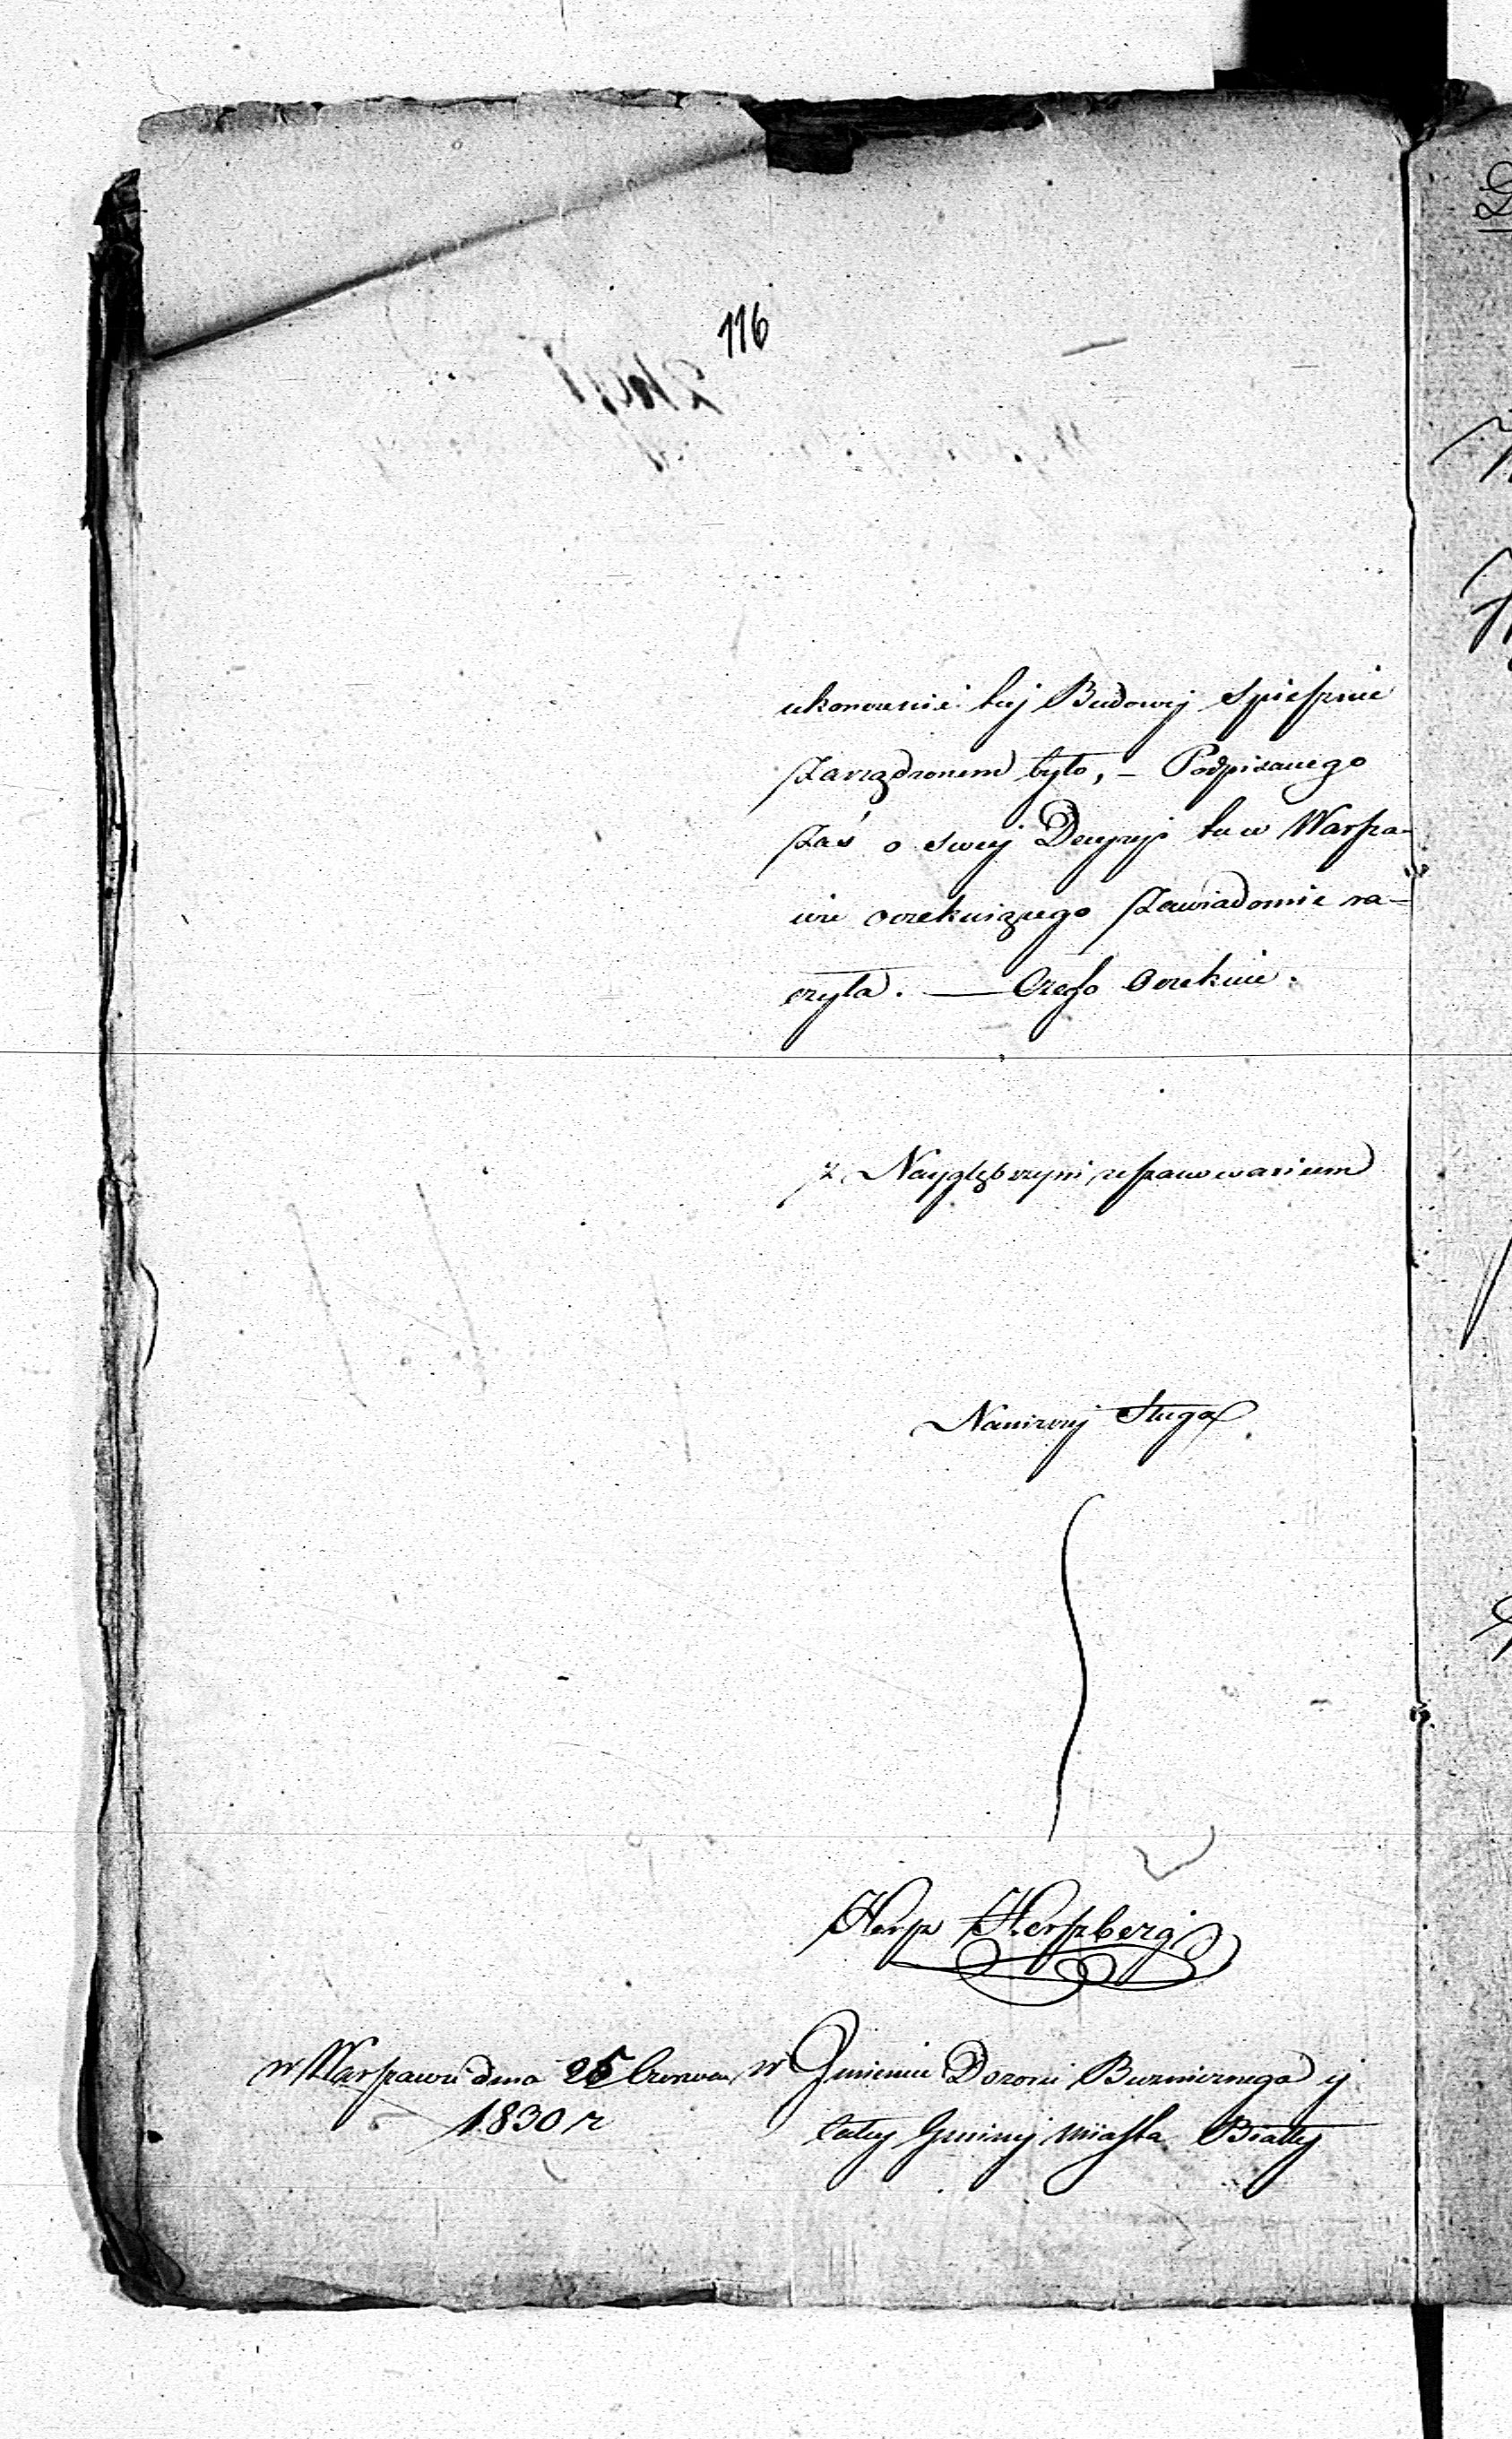 116
ukonczenie tej Budowy spiesznie
Zarządzonem było, – Podpisanego
Zaś o swej Decyzyi tu w Warsza-
wie oczekuiącego Zawiadomić ra-
czyła. — Czego Oczekuie.
z Nayglębszym uszanowaniem
Naniższy Sługa
Hersz Herszberg
w Warszawie dnia 25 Czerwca
1830 r
w Jmieniu Dozoru Buznicznego y
całey Gminy Miasta Biały